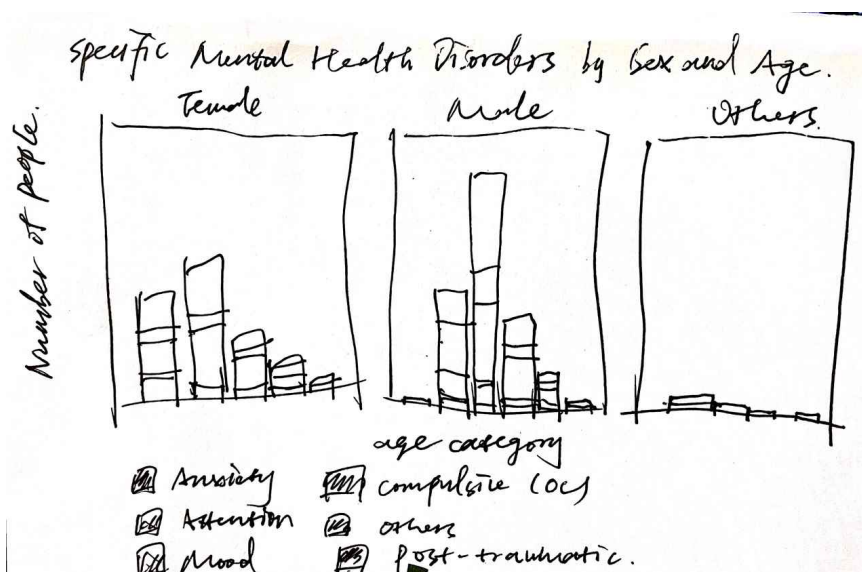 Specific Mental Health Disorders by Sex and Age.
Female Male Others.
Number of people.
age category
Anxiety compulsive (OC)
Attention others
Mood Post-traumatic.